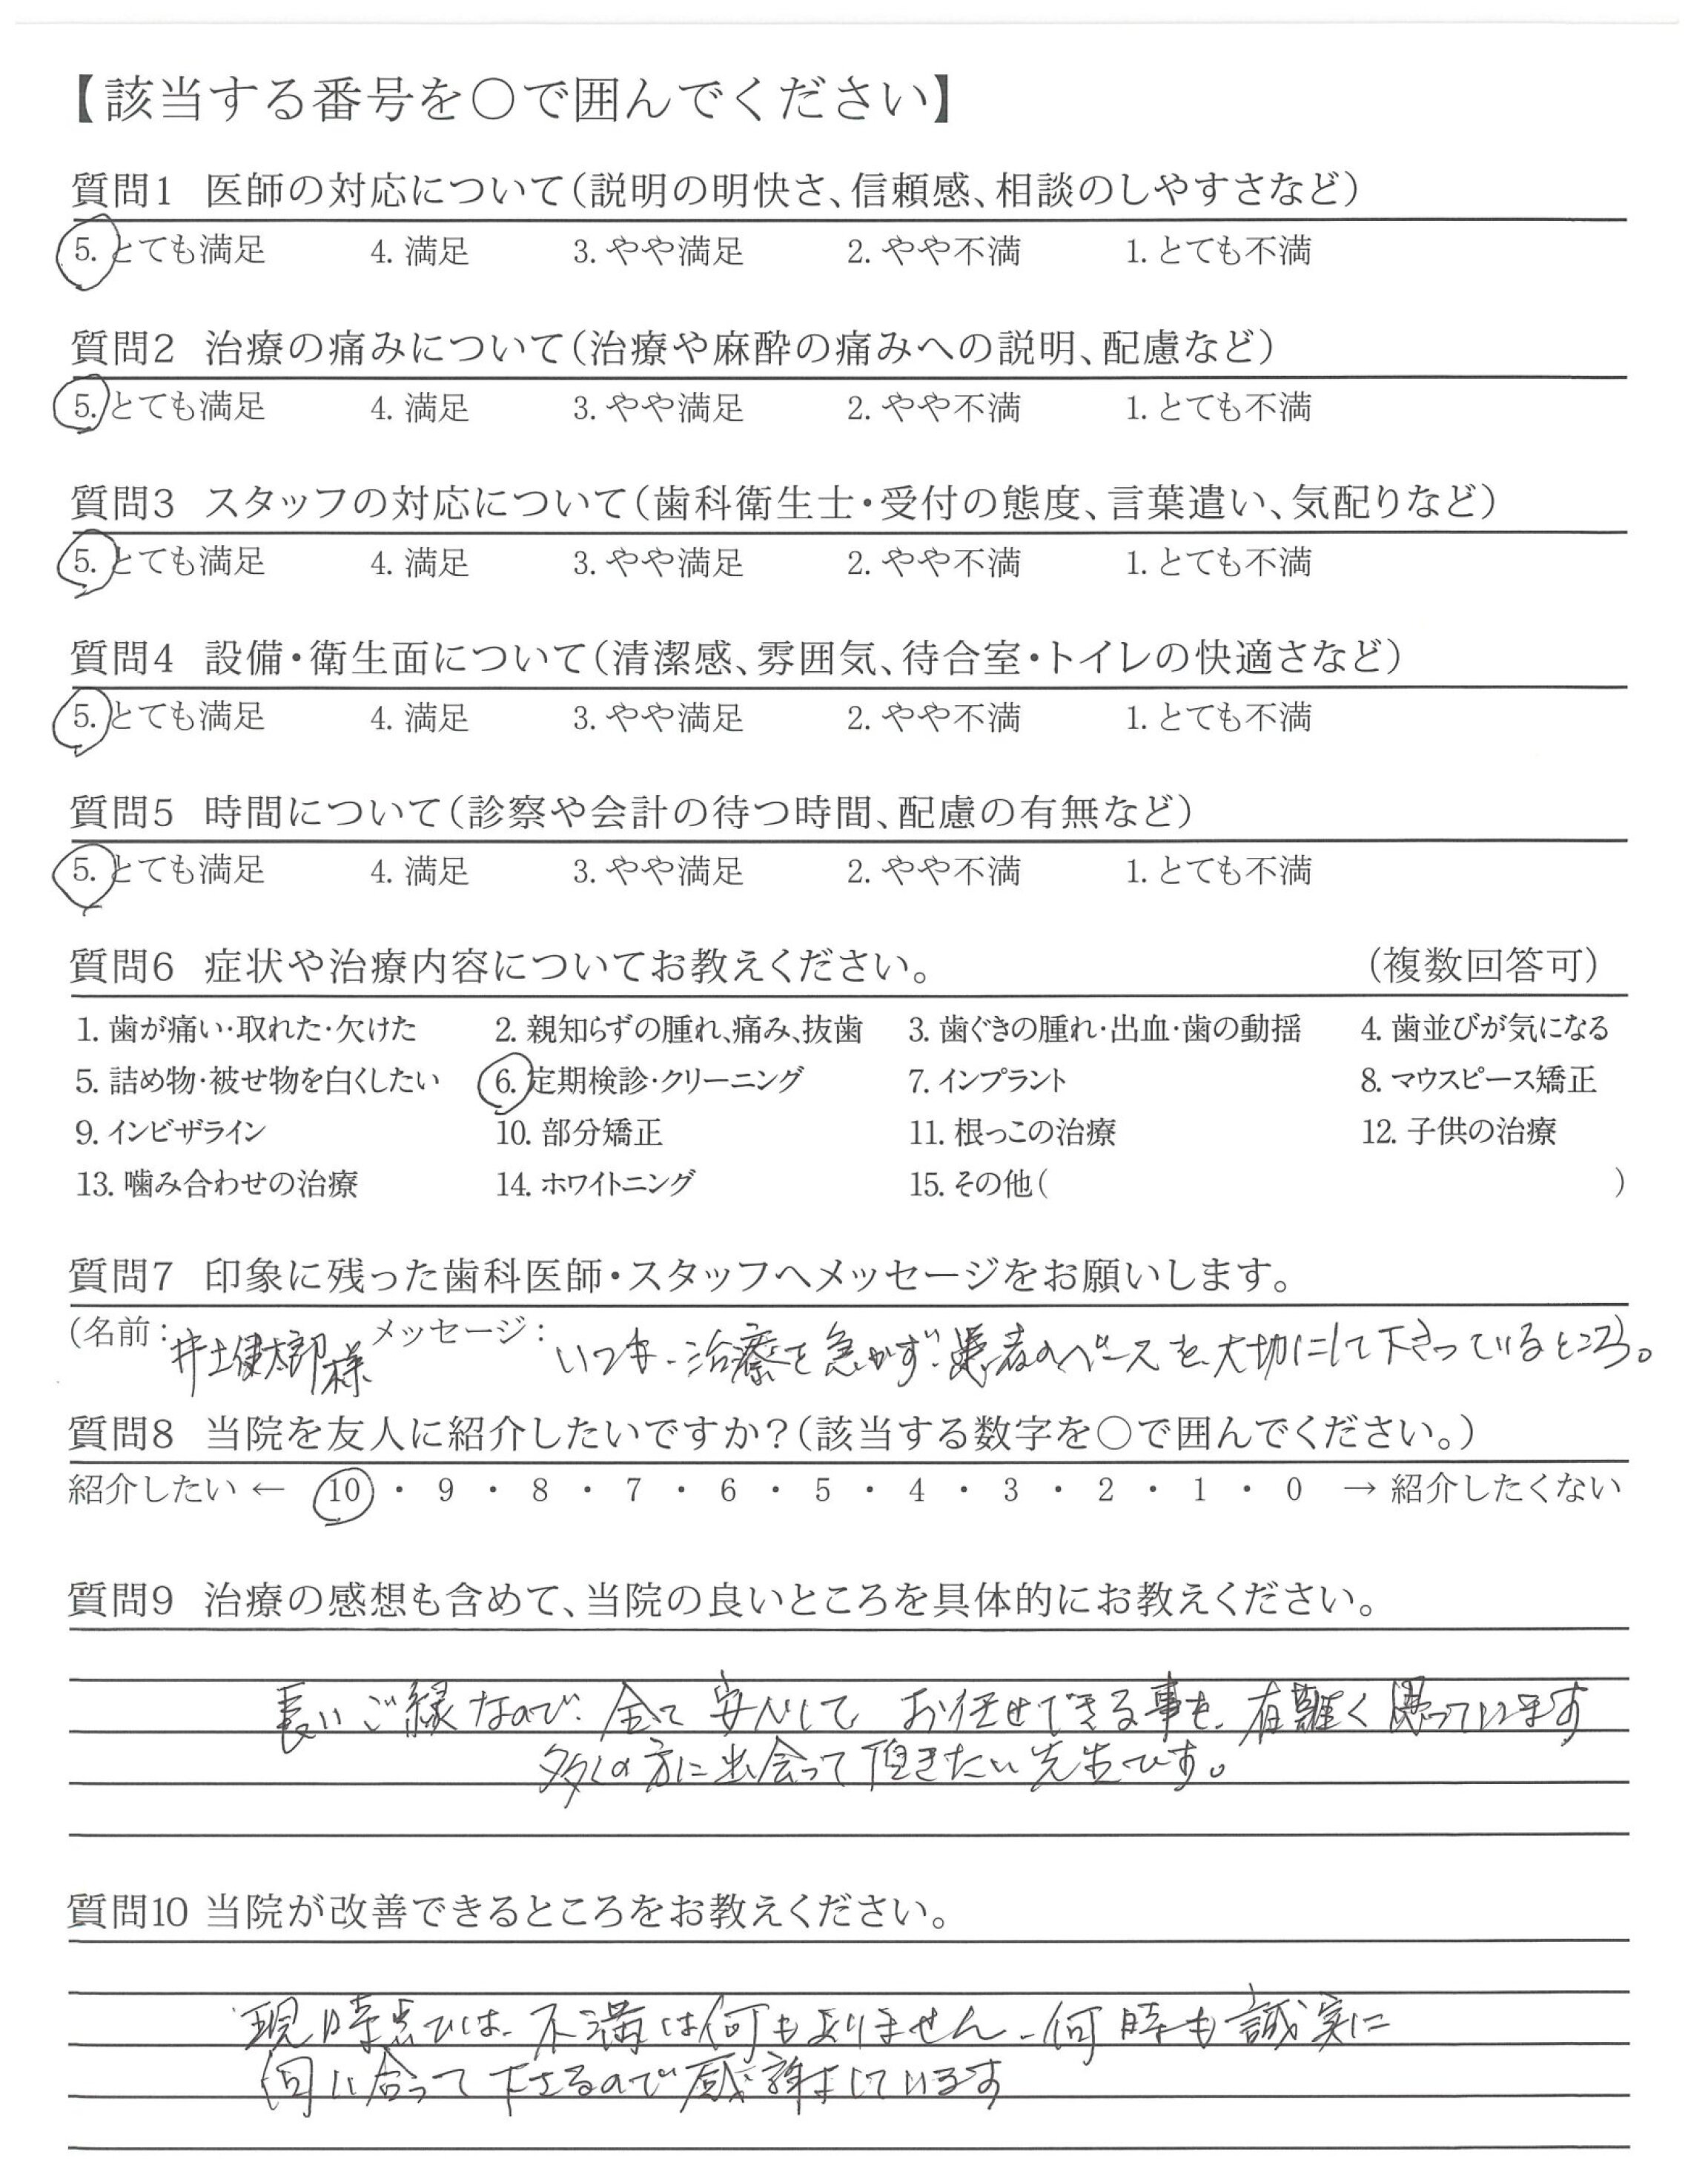 【該当する番号を〇で囲んでください】
質問1 医師の対応について(説明の明快さ、信頼感、相談のしやすさなど)
5. とても満足 4. 満足 3. やや満足 2. やや不満 1. とても不満
質問2 治療の痛みについて(治療や麻酔の痛みへの説明、配慮など)
5. とても満足 4. 満足 3. やや満足 2. やや不満 1. とても不満
質問3 スタッフの対応について(歯科衛生士・受付の態度、言葉遣い、気配りなど)
5. とても満足 4. 満足 3. やや満足 2. やや不満 1. とても不満
質問4 設備・衛生面について(清潔感、雰囲気、待合室・トイレの快適さなど)
5. とても満足 4. 満足 3. やや満足 2. やや不満 1. とても不満
質問5 時間について(診察や会計の待つ時間、配慮の有無など)
5. とても満足 4. 満足 3. やや満足 2. やや不満 1. とても不満
質問6 症状や治療内容についてお教えください。 (複数回答可)
1. 歯が痛い・取れた・欠けた 2. 親知らずの腫れ、痛み、抜歯 3. 歯ぐきの腫れ・出血・歯の動揺 4. 歯並びが気になる
5. 詰め物・被せ物を白くしたい 6. 定期検診・クリーニング 7. インプラント 8. マウスピース矯正
9. インビザライン 10. 部分矯正 11. 根っこの治療 12. 子供の治療
13. 噛み合わせの治療 14. ホワイトニング 15. その他( )
質問7 印象に残った歯科医師・スタッフへメッセージをお願いします。
(名前: 井土健太郎様 メッセージ: いつも、治療を急がず、患者のペースを大切にして下さっているところ。
質問8 当院を友人に紹介したいですか?(該当する数字を〇で囲んでください。)
紹介したい ← 10 ・ 9 ・ 8 ・ 7 ・ 6 ・ 5 ・ 4 ・ 3 ・ 2 ・ 1 ・ 0 → 紹介したくない
質問9 治療の感想も含めて、当院の良いところを具体的にお教えください。
長いご縁なので、全て安心して、お任せできる事を、有難く思っています
多くの方に出会って頂きたい先生です。
質問10 当院が改善できるところをお教えください。
現時点では、不満は何もありません、何時も誠実に
向に合って下さるので感謝しています